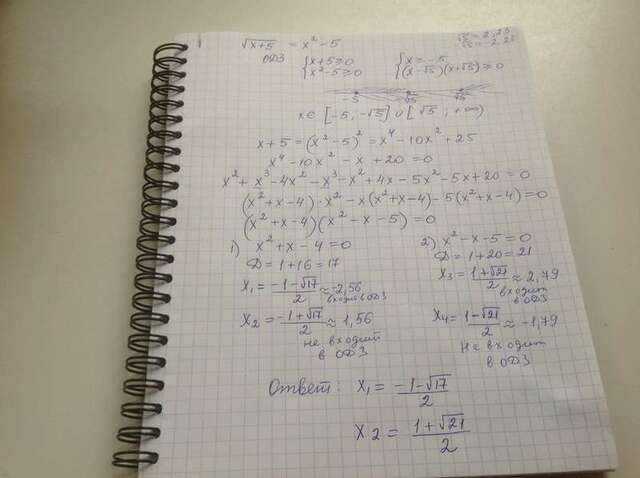 √x+5 = x² - 5
√5 = 2,23
-√5 = -2,23
ОДЗ { x+5 ≥ 0 { x = -5
{ x² - 5 ≥ 0 { (x-√5)(x+√5) ≥ 0
-5 -√5 √5
x ∈ [-5; -√5] ∪ [√5; +∞)
x+5 = (x²-5)² = x⁴ - 10x² + 25
x⁴ - 10x² - x + 20 = 0
x² + x³ - 4x² - x³ - x² + 4x - 5x² - 5x + 20 = 0
(x²+x-4)·x² - x(x²+x-4) - 5(x²+x-4) = 0
(x²+x-4)(x²-x-5) = 0
1) x²+x-4 = 0
D = 1+16 = 17
x₁ = -1-√17/2 ≈ -2,56
входит в ОДЗ
x₂ = -1+√17/2 ≈ 1,56
не входит
в ОДЗ
2) x²-x-5 = 0
D = 1+20 = 21
x₃ = 1+√21/2 ≈ 2,79
входит
в ОДЗ
x₄ = 1-√21/2 ≈ -1,79
не входит
в ОДЗ
Ответ: x₁ = -1-√17/2
x2 = 1+√21/2